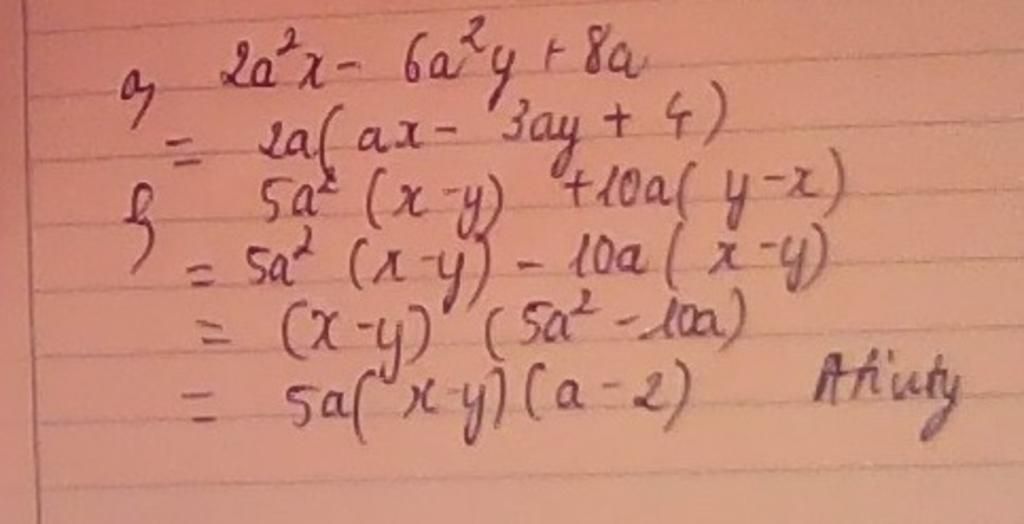 a, 2a²x - 6a²y + 8a
= 2a( ax - 3ay + 4 )
5a² (x-y) +10a( y-x)
= 5a² (x-y) - 10a( x-y)
= (x-y) (5a² - 10a)
= 5a( x-y) (a-2)